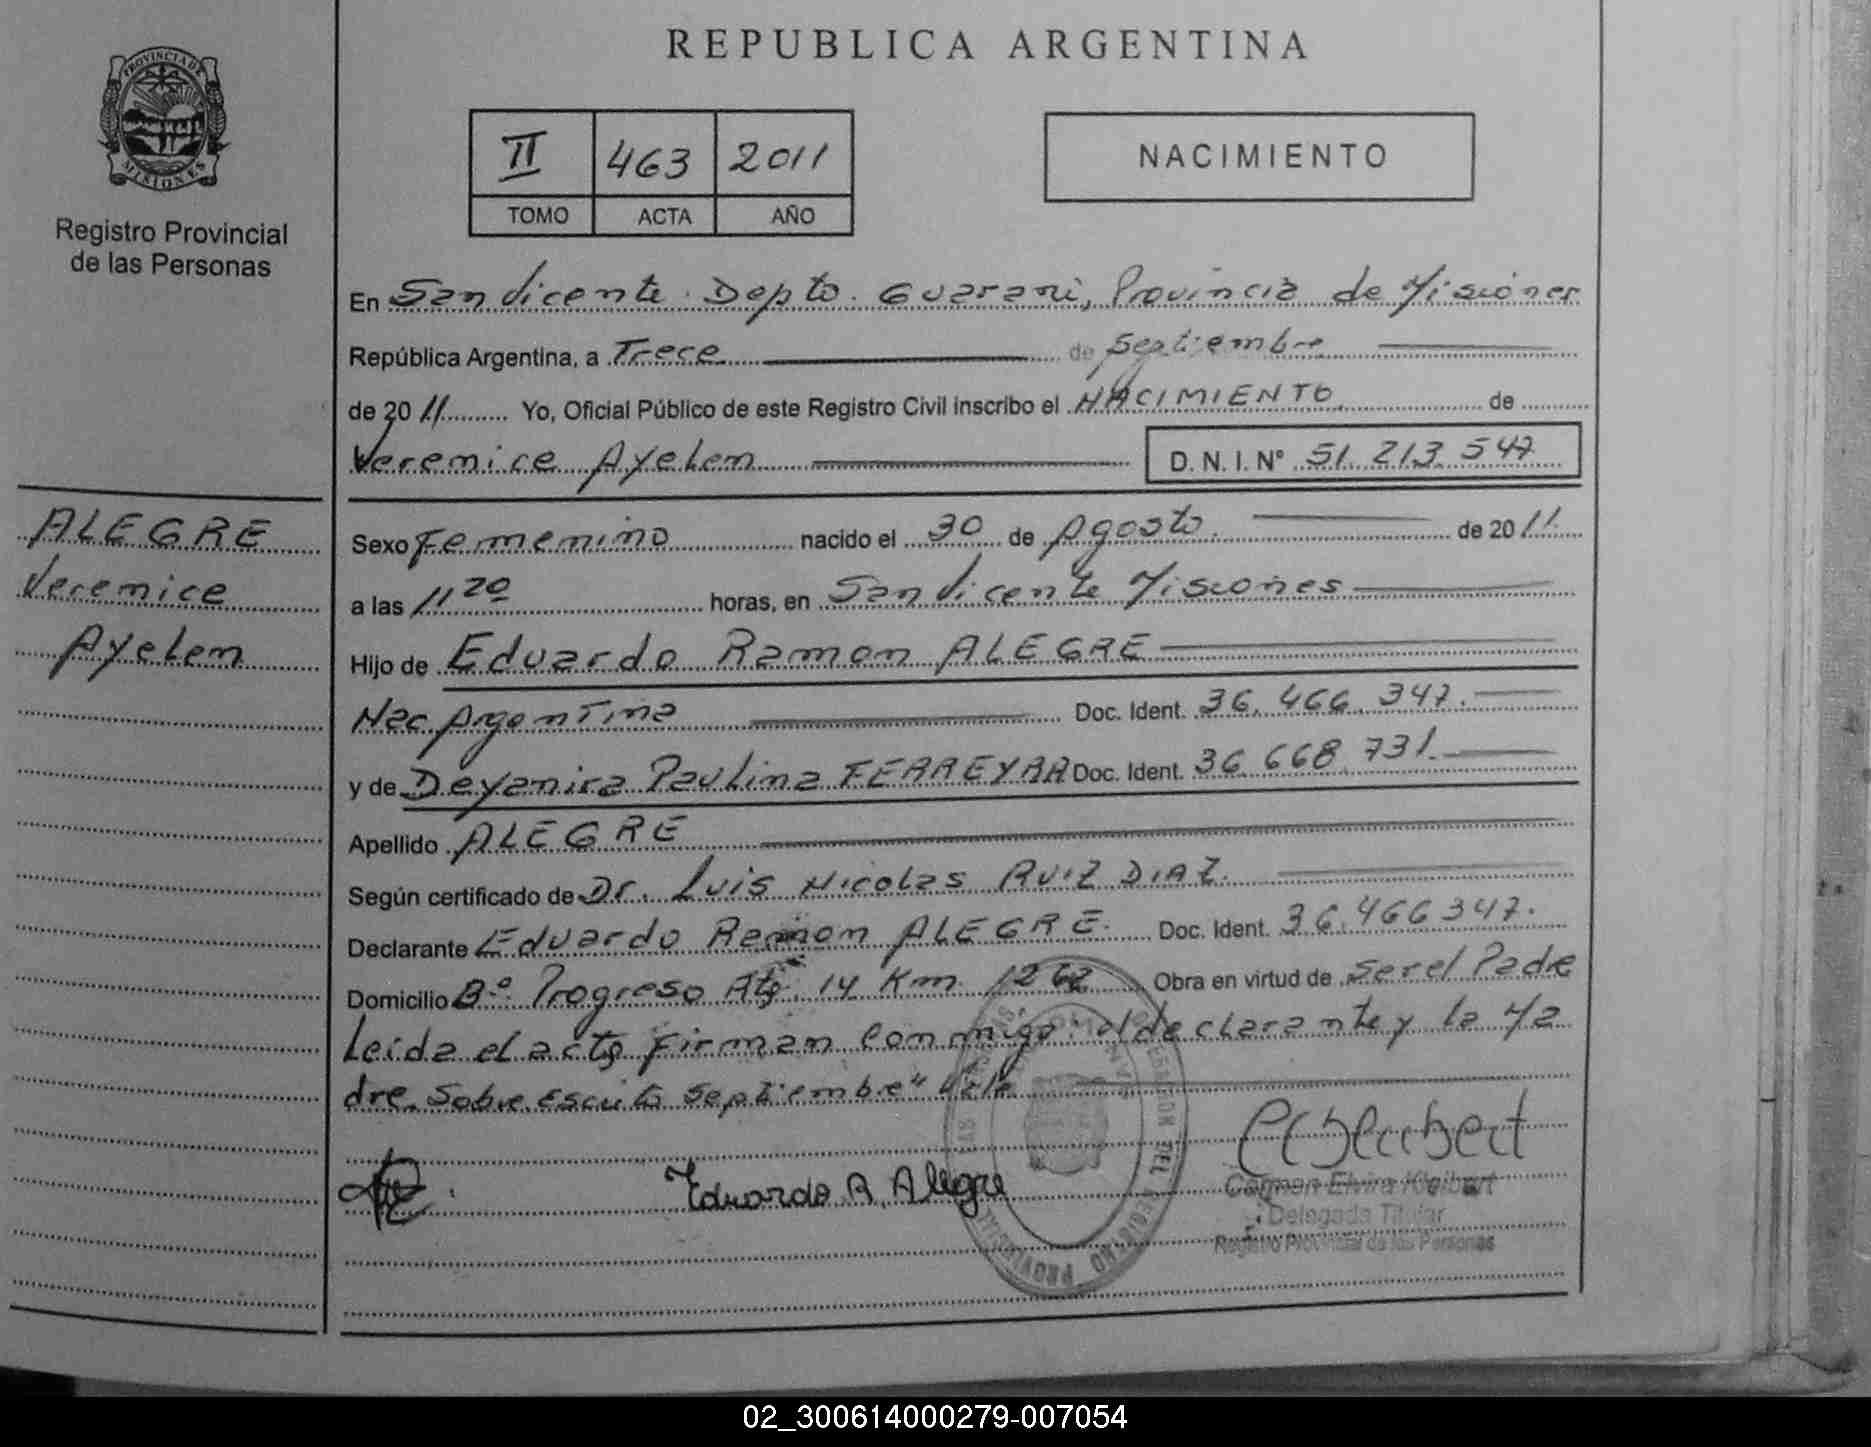 PROVINCIA DE
MISIONES
Registro Provincial
de las Personas
ALEGRE
Verenice
Ayelen
REPUBLICA ARGENTINA
II 463 2011
TOMO ACTA AÑO
NACIMIENTO
En San Vicente Depto. Guarani, Provincia de Misiones
República Argentina, a Trece de Septiembre
de 2011 Yo, Oficial Público de este Registro Civil inscribo el NACIMIENTO de
Verenice Ayelen D. N. I. N° 51.213.547
Sexo Femenino nacido el 30 de Agosto. de 2011.
a las 11 20 horas, en San Vicente Misiones
Hijo de Eduardo Ramon ALEGRE
Nac Argentina Doc. Ident. 36.466.347.
y de Deyanira Paulina FERREYRA Doc. Ident. 36.668.731.
Apellido ALEGRE
Según certificado de Dr. Luis Nicolas RUIZ DIAZ.
Declarante Eduardo Ramon ALEGRE. Doc. Ident. 36.466347.
Domicilio B.° Progreso 14 Km Obra en virtud de ser el Padre
Leida el acta Firman conmigo: el declarante y la Ma
dre. Sobre escrito Septiembre" Vale
Eduardo R. Alegre
Carmen Elvira Kleibert
Delegada Titular
Registro Provincial de las Personas
02_300614000279-007054